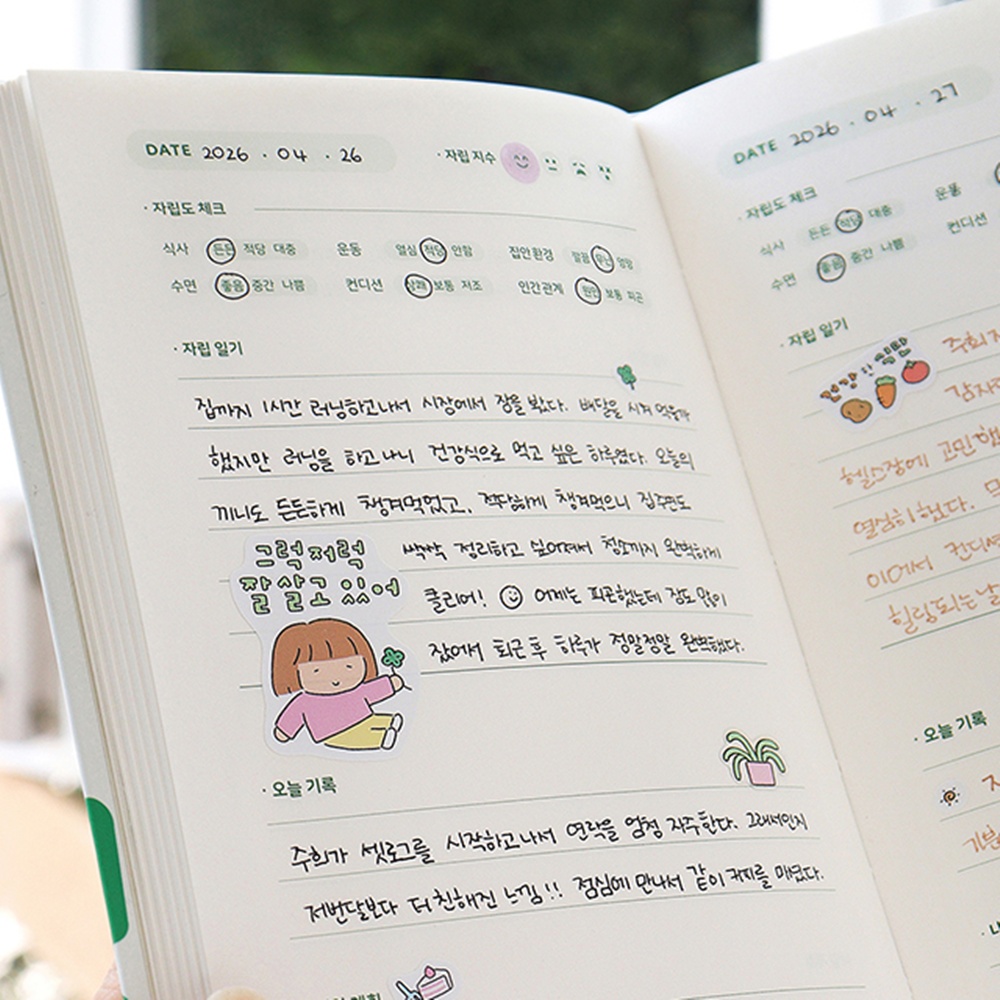 DATE 2026 . 04 . 26
· 자립 지수
· 자립도 체크
식사 든든 적당 대충 운동 열심 적당 안함 집안환경 깔끔 무난 엉망
수면 좋음 중간 나쁨 컨디션 상쾌 보통 저조 인간관계 원만 보통 피곤
· 자립 일기
집까지 1시간 러닝하고나서 시장에서 장을 봤다. 배달을 시켜 먹을까
했지만 러닝을 하고 나니 건강식으로 먹고 싶은 하루였다. 오늘의
끼니도 든든하게 챙겨먹었고, 적당하게 챙겨먹으니 집주변도
싹싹 정리하고 싶어져서 청소까지 완벽하게
클리어! 어제는 피곤했는데 잠도 많이
잤어서 퇴근 후 하루가 정말정말 완벽했다.
그럭저럭
잘 살고 있어
· 오늘 기록
주희가 셋로그를 시작하고나서 연락을 엄청 자주한다. 그래서인지
저번달보다 더 친해진 느낌!! 점심에 만나서 같이 커피를 마셨다.
DATE 2026 . 04 . 27
· 자립도 체크
식사 든든 적당 대충 운동
수면 좋음 중간 나쁨 컨디션
· 자립 일기
건강한 식단
주희
감자
헬스장에 고민
열심히 했다.
이어서 컨디션
힐링되는 날
· 오늘 기록
기분